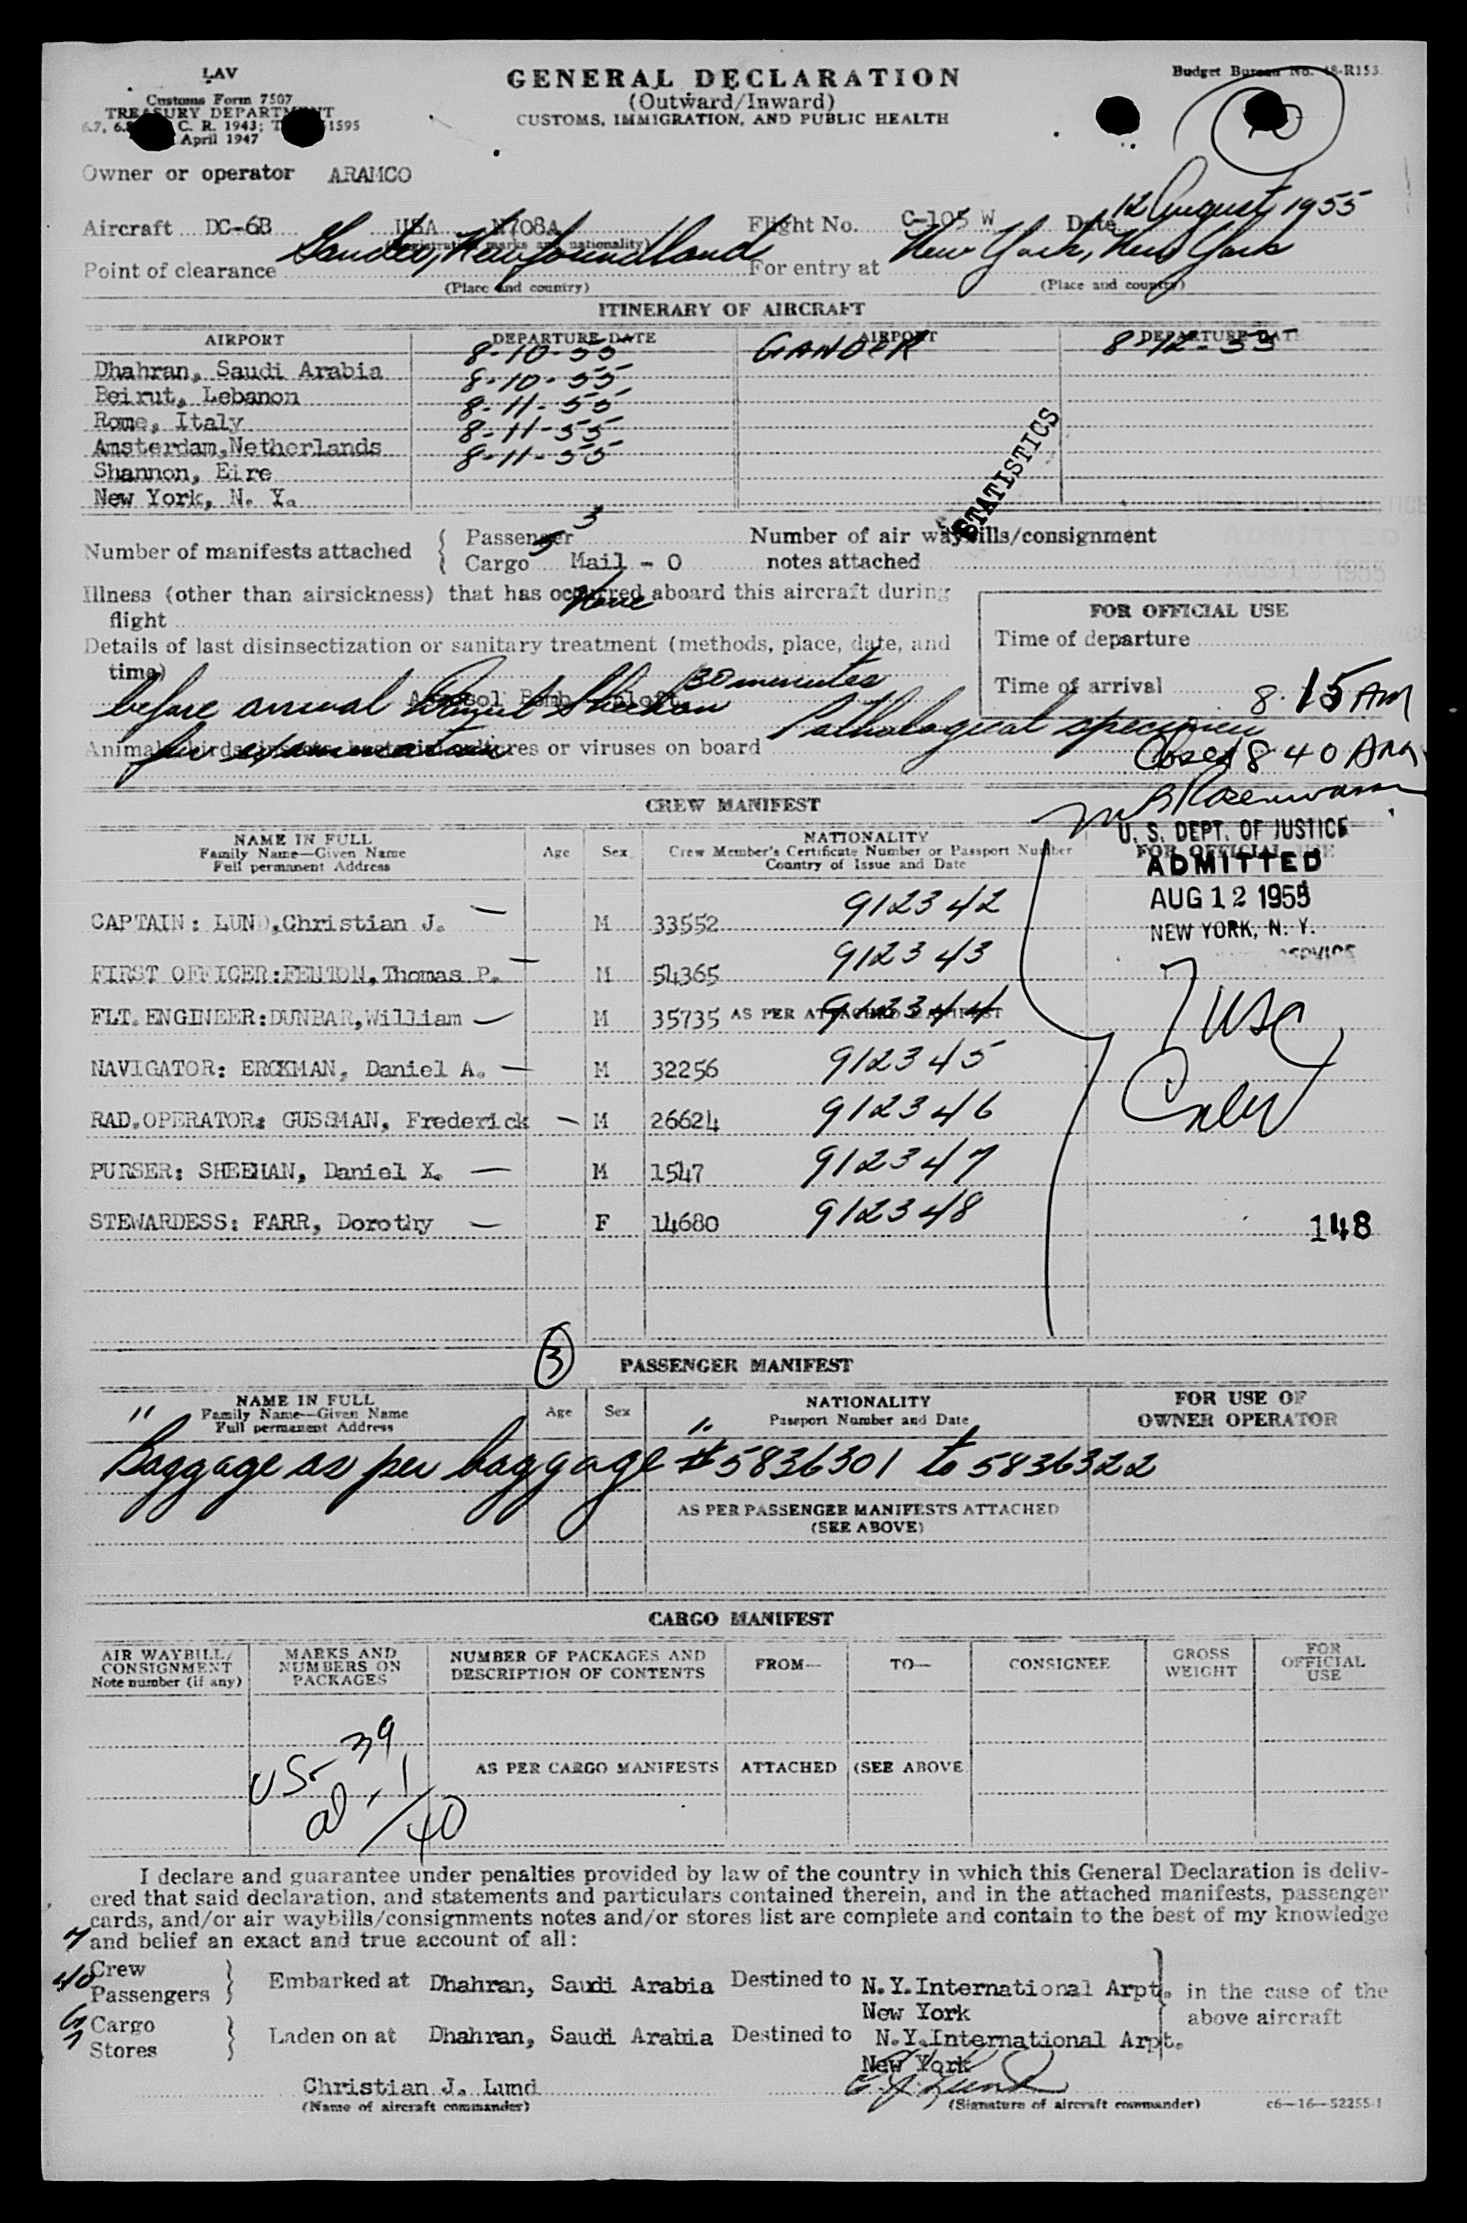 LAV
Customs Form 7507
TREASURY DEPARTMENT
C. R. 1943; 1595
April 1947
GENERAL DECLARATION
(Outward/Inward)
CUSTOMS, IMMIGRATION, AND PUBLIC HEALTH
Budget Bureau No. 48-R153
Owner or operator ARAMCO
Aircraft DC-6B USA N708A Flight No. C-105 W Date 12 August 1955
(Registration marks and nationality)
Point of clearance Gander, Newfoundland For entry at New York, New York
(Place and country) (Place and country)
ITINERARY OF AIRCRAFT
AIRPORT DEPARTURE DATE AIRPORT DEPARTURE DATE
Dhahran, Saudi Arabia 8-10-55 GANDER 8-12-55
Beirut, Lebanon 8-10-55
Rome, Italy 8-11-55
Amsterdam, Netherlands 8-11-55
Shannon, Eire 8-11-55
New York, N. Y.
STATISTICS
Number of manifests attached { Passenger 3 Number of air waybills/consignment
Cargo 3 Mail - 0 notes attached
Illness (other than airsickness) that has occurred aboard this aircraft during
flight None
FOR OFFICIAL USE
Details of last disinsectization or sanitary treatment (methods, place, date, and
Time of departure
time) Aerosol Bomb Aloft 30 minutes
Time of arrival 8.15 AM
before arrival Daniel Sheehan
Animals, birds, insects, bacterial cultures or viruses on board Pathological specimen
for examination
Closed 8 40 AM
CREW MANIFEST
NAME IN FULL
Family Name—Given Name
Full permanent Address
Age Sex
NATIONALITY
Crew Member's Certificate Number or Passport Number
Country of Issue and Date
FOR OFFICIAL USE
U. S. DEPT. OF JUSTICE
ADMITTED
AUG 12 1955
NEW YORK, N. Y.
SERVICE
CAPTAIN: LUND, Christian J. — M 33552 912342
FIRST OFFICER: FENTON, Thomas P. — M 54365 912343
FLT. ENGINEER: DUNBAR, William — M 35735 AS PER ATTACHED MANIFEST 912344
NAVIGATOR: ERCKMAN, Daniel A. — M 32256 912345
RAD. OPERATOR: GUSSMAN, Frederick — M 26624 912346
PURSER: SHEEHAN, Daniel X. — M 1547 912347
STEWARDESS: FARR, Dorothy — F 14680 912348
7 USC
Crew
148
3
PASSENGER MANIFEST
NAME IN FULL
Family Name—Given Name
Full permanent Address
Age Sex
NATIONALITY
Passport Number and Date
FOR USE OF
OWNER OPERATOR
"Baggage as per baggage" #5836301 to 5836322
AS PER PASSENGER MANIFESTS ATTACHED
(SEE ABOVE)
CARGO MANIFEST
AIR WAYBILL/
CONSIGNMENT
Note number (if any)
MARKS AND
NUMBERS ON
PACKAGES
NUMBER OF PACKAGES AND
DESCRIPTION OF CONTENTS
FROM— TO— CONSIGNEE
GROSS
WEIGHT
FOR
OFFICIAL
USE
US- 39
al - 1
40
AS PER CARGO MANIFESTS ATTACHED (SEE ABOVE
I declare and guarantee under penalties provided by law of the country in which this General Declaration is deliv-
ered that said declaration, and statements and particulars contained therein, and in the attached manifests, passenger
cards, and/or air waybills/consignments notes and/or stores list are complete and contain to the best of my knowledge
and belief an exact and true account of all:
7 Crew
40 Passengers } Embarked at Dhahran, Saudi Arabia Destined to N.Y. International Arpt.
New York
in the case of the
above aircraft
Cargo
Stores } Laden on at Dhahran, Saudi Arabia Destined to N.Y. International Arpt.
New York
Christian J. Lund C. J. Lund
(Name of aircraft commander) (Signature of aircraft commander) c6—16—52255-1